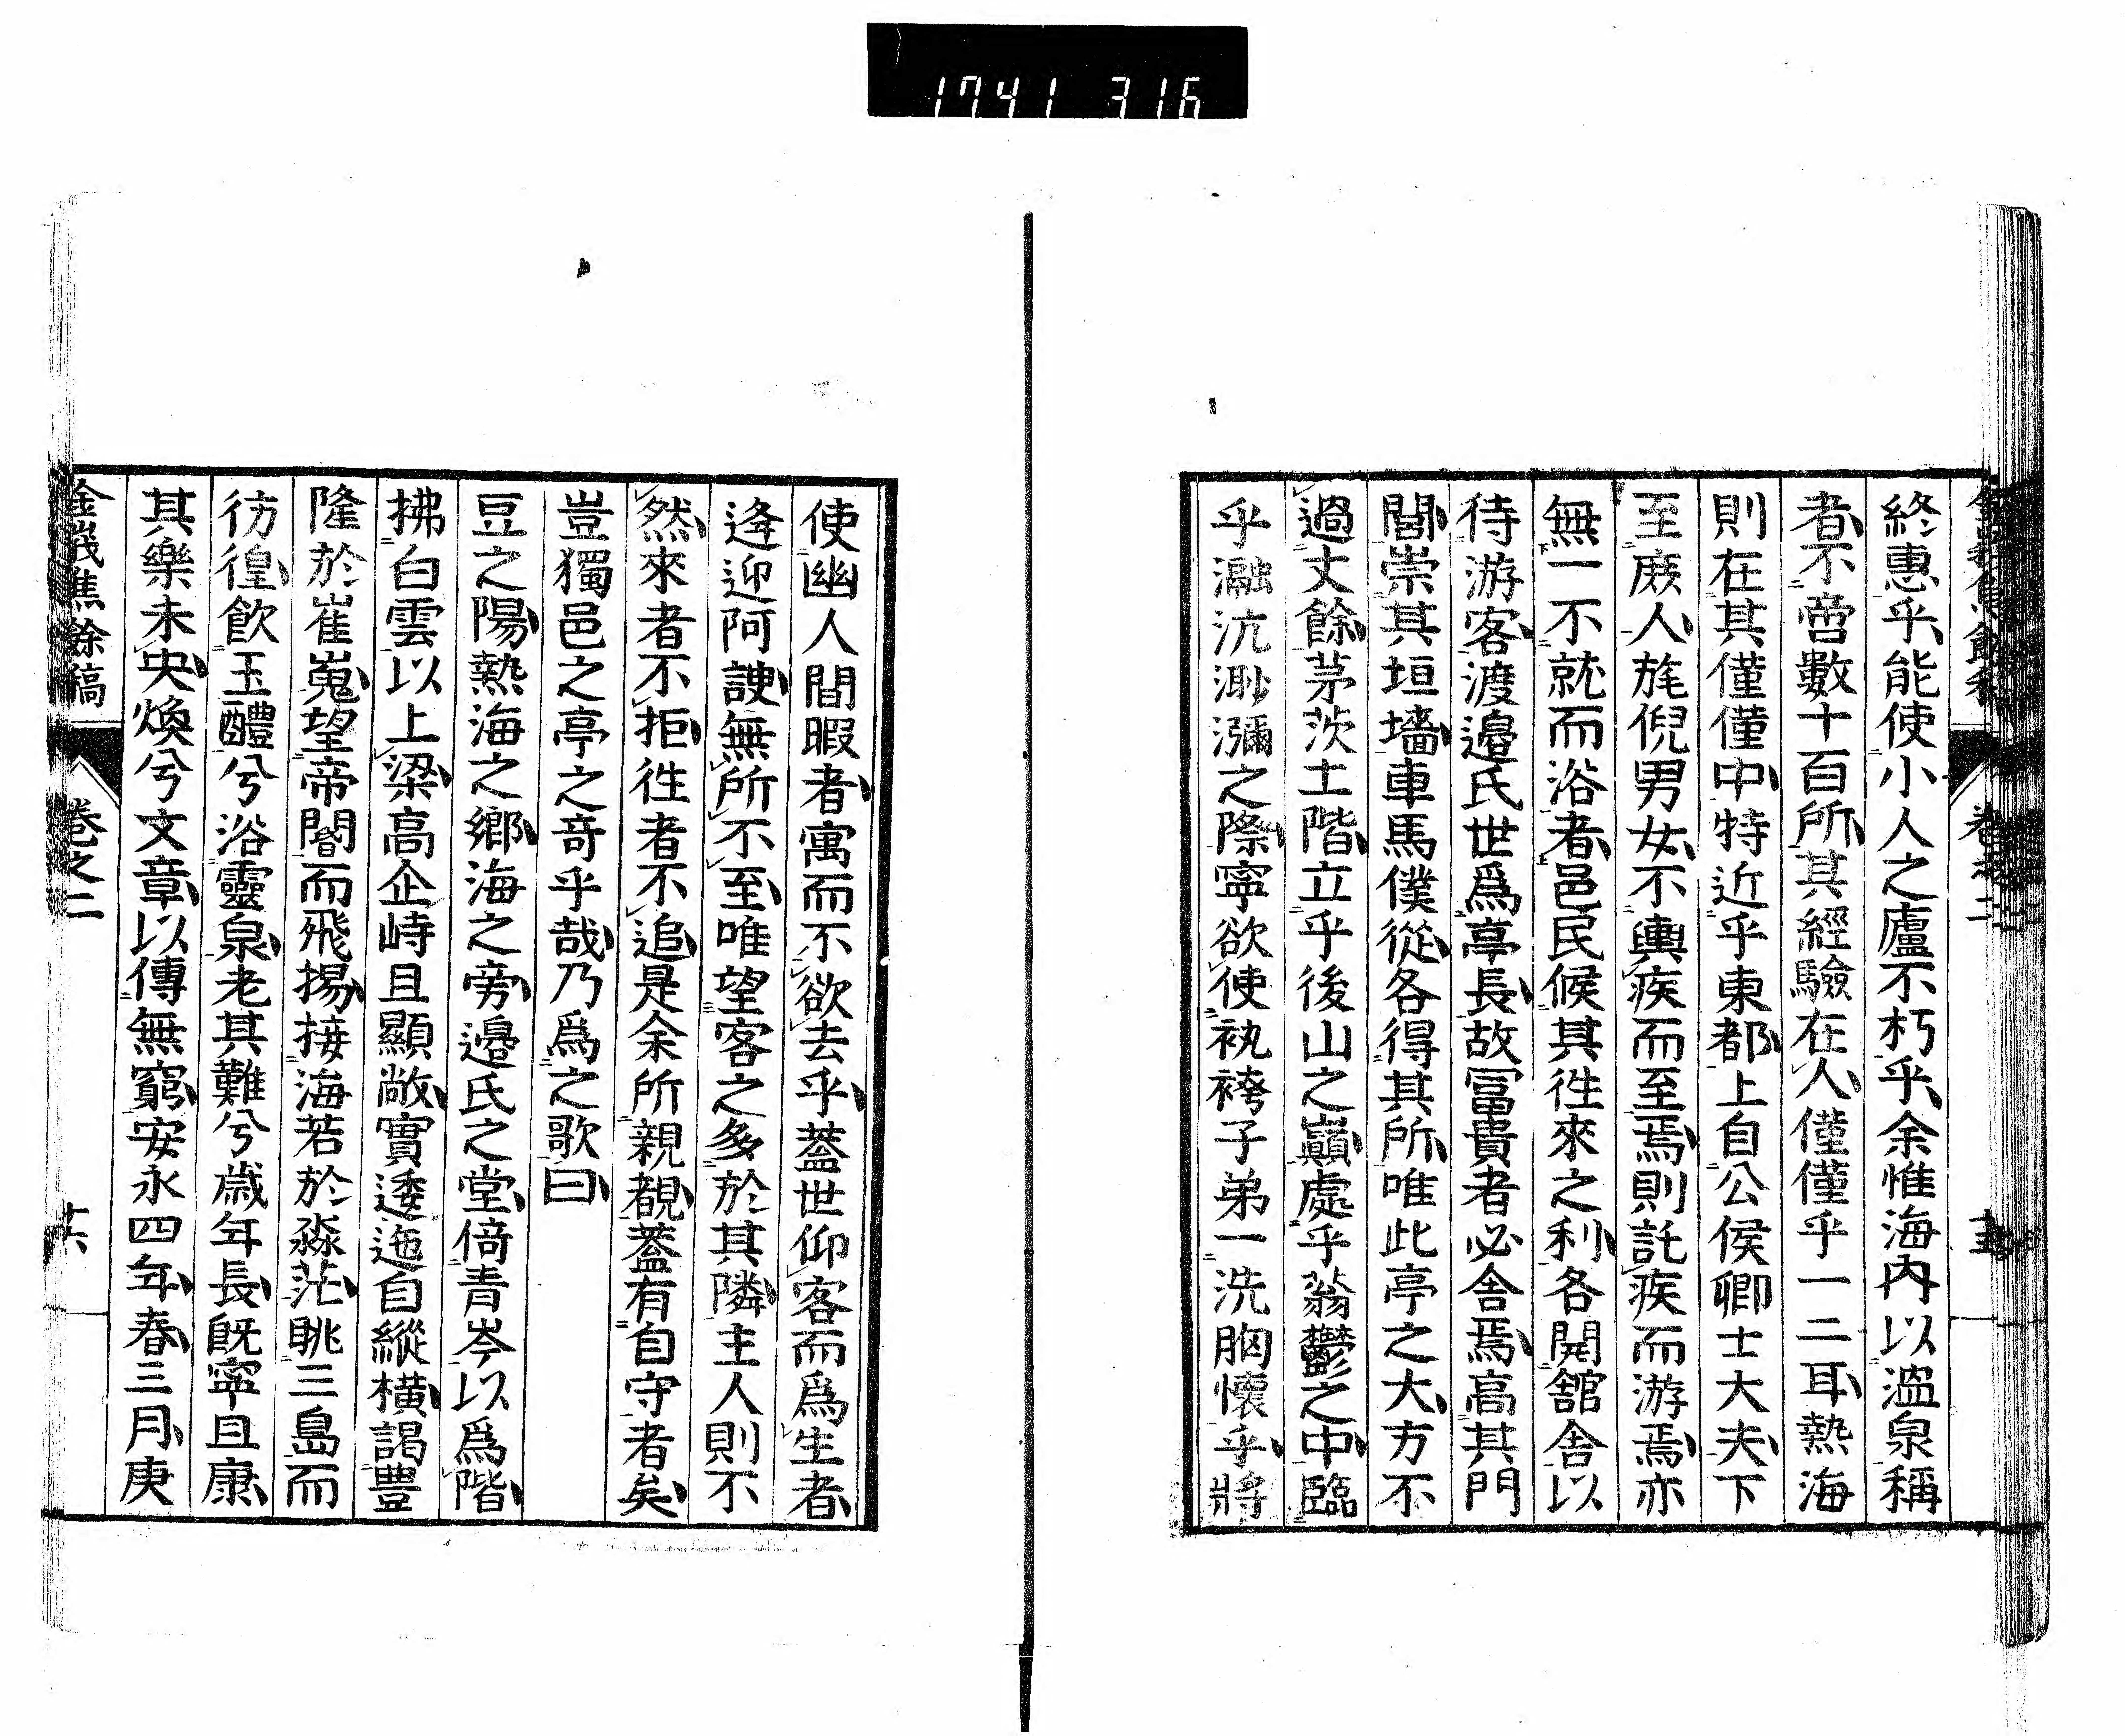 1741 316
終惠乎能使小人之廬不朽乎余惟海內以溫泉稱
者不啻數十百所其經驗在人僅僅乎一二耳熱海
則在其僅僅中特近乎東都上自公侯卿士大夫下
至廝人旄倪男女不輿疾而至焉則託疾而游焉亦
無一不就而浴者邑民候其徃來之利各開舘舍以
待游客渡邉氏世爲亭長故冨貴者必舍焉高其門
閭崇其垣墻車馬僕從各得其所唯此亭之大方不
過丈餘茅茨土階立乎後山之巓處乎蓊鬱之中臨
乎瀜沆渺瀰之際寧欲使袂袴子弟一洗胸懷乎將
使幽人間暇者寓而不欲去乎蓋世仰客而爲生者
逄迎阿諛無所不至唯望客之多於其隣主人則不
然來者不拒徃者不追是余所親覩蓋有自守者矣
豈獨邑之亭之奇乎哉乃爲之歌曰
豆之陽熱海之鄉海之旁邉氏之堂倚青岑以爲階
拂白雲以上梁高企峙且顯敞實逶迤自縱橫謁豊
隆於崔嵬望帝閽而飛揚接海若於淼茫眺三島而
彷徨飲玉醴兮浴靈泉老其難兮歲年長旣寧且康
其樂未央煥兮文章以傳無窮安永四年春三月庚
金峩焦餘稿 卷之二 廿六